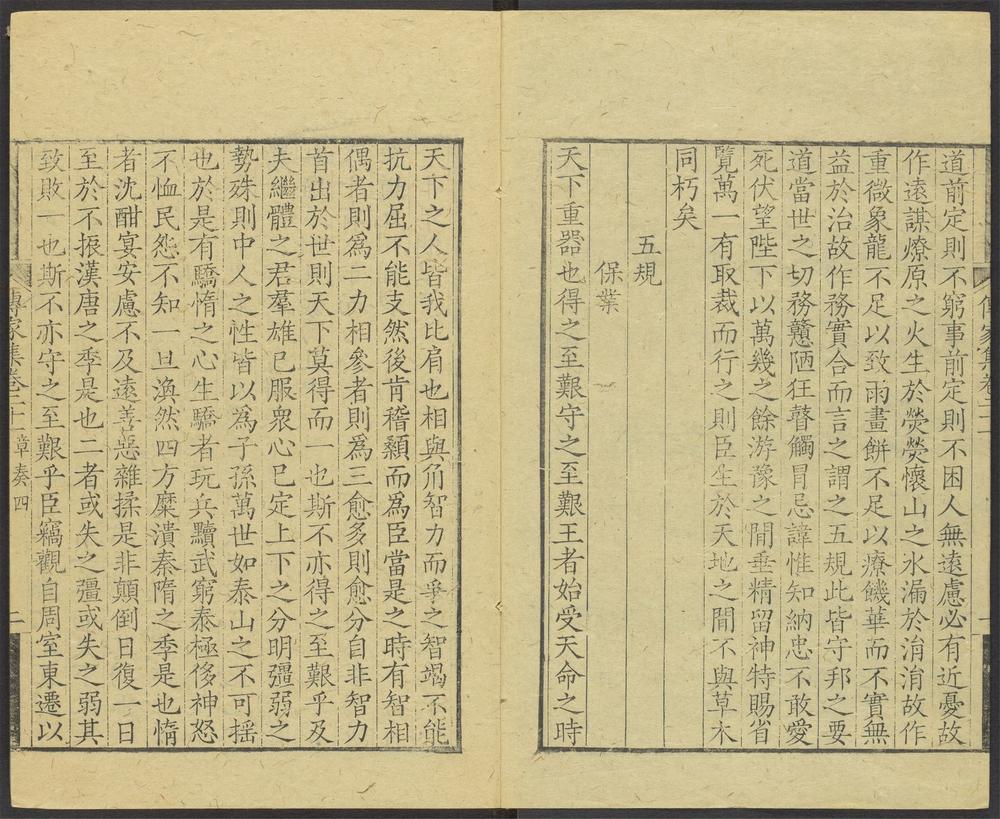 道前定則不窮事前定則不困人無遠慮必有近憂故
作遠謀燎原之火生於熒熒懷山之水漏於涓涓故作
重微象龍不足以致雨畫餅不足以療饑華而不實無
益於治故作務實合而言之謂之五規此皆守邦之要
道當世之切務戇陋狂瞽觸冒忌諱惟知納忠不敢愛
死伏望陛下以萬幾之餘游豫之間垂精留神特賜省
覽萬一有取裁而行之則臣生於天地之間不與草木
同朽矣
五規
保業
天下重器也得之至艱守之至艱王者始受天命之時
天下之人皆我比肩也相與角智力而爭之智竭不能
抗力屈不能支然後肯稽顙而爲臣當是之時有智相
偶者則爲二力相參者則爲三愈多則愈分自非智力
首出於世則天下莫得而一也斯不亦得之至艱乎及
夫繼體之君羣雄已服衆心已定上下之分明彊弱之
勢殊則中人之性皆以為子孫萬世如泰山之不可揺
也於是有驕惰之心生驕者玩兵黷武窮泰極侈神怒
不恤民怨不知一旦渙然四方糜潰秦隋之季是也惰
者沈酣宴安慮不及遠善惡雜揉是非顛倒日復一日
至於不振漢唐之季是也二者或失之彊或失之弱其
致敗一也斯不亦守之至艱乎臣竊觀自周室東遷以
傳家集卷二十一章奏四
二